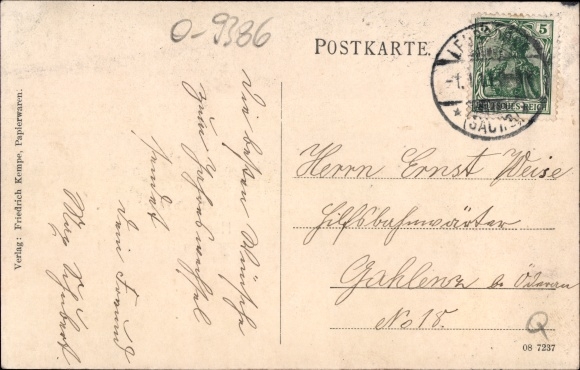 O-9386
POSTKARTE.
5
DEUTSCHES REICH
(SACHS)
Verlag: Friedrich Kempe, Papierwaren.
Die besten Wünsche
zum Jahreswechsel
sendet
Dein Freund
Max Schubert.
Herrn Ernst Weise
Hilfsbahnwärter
Gahlenz bei Öderan
No 18.
08 7237